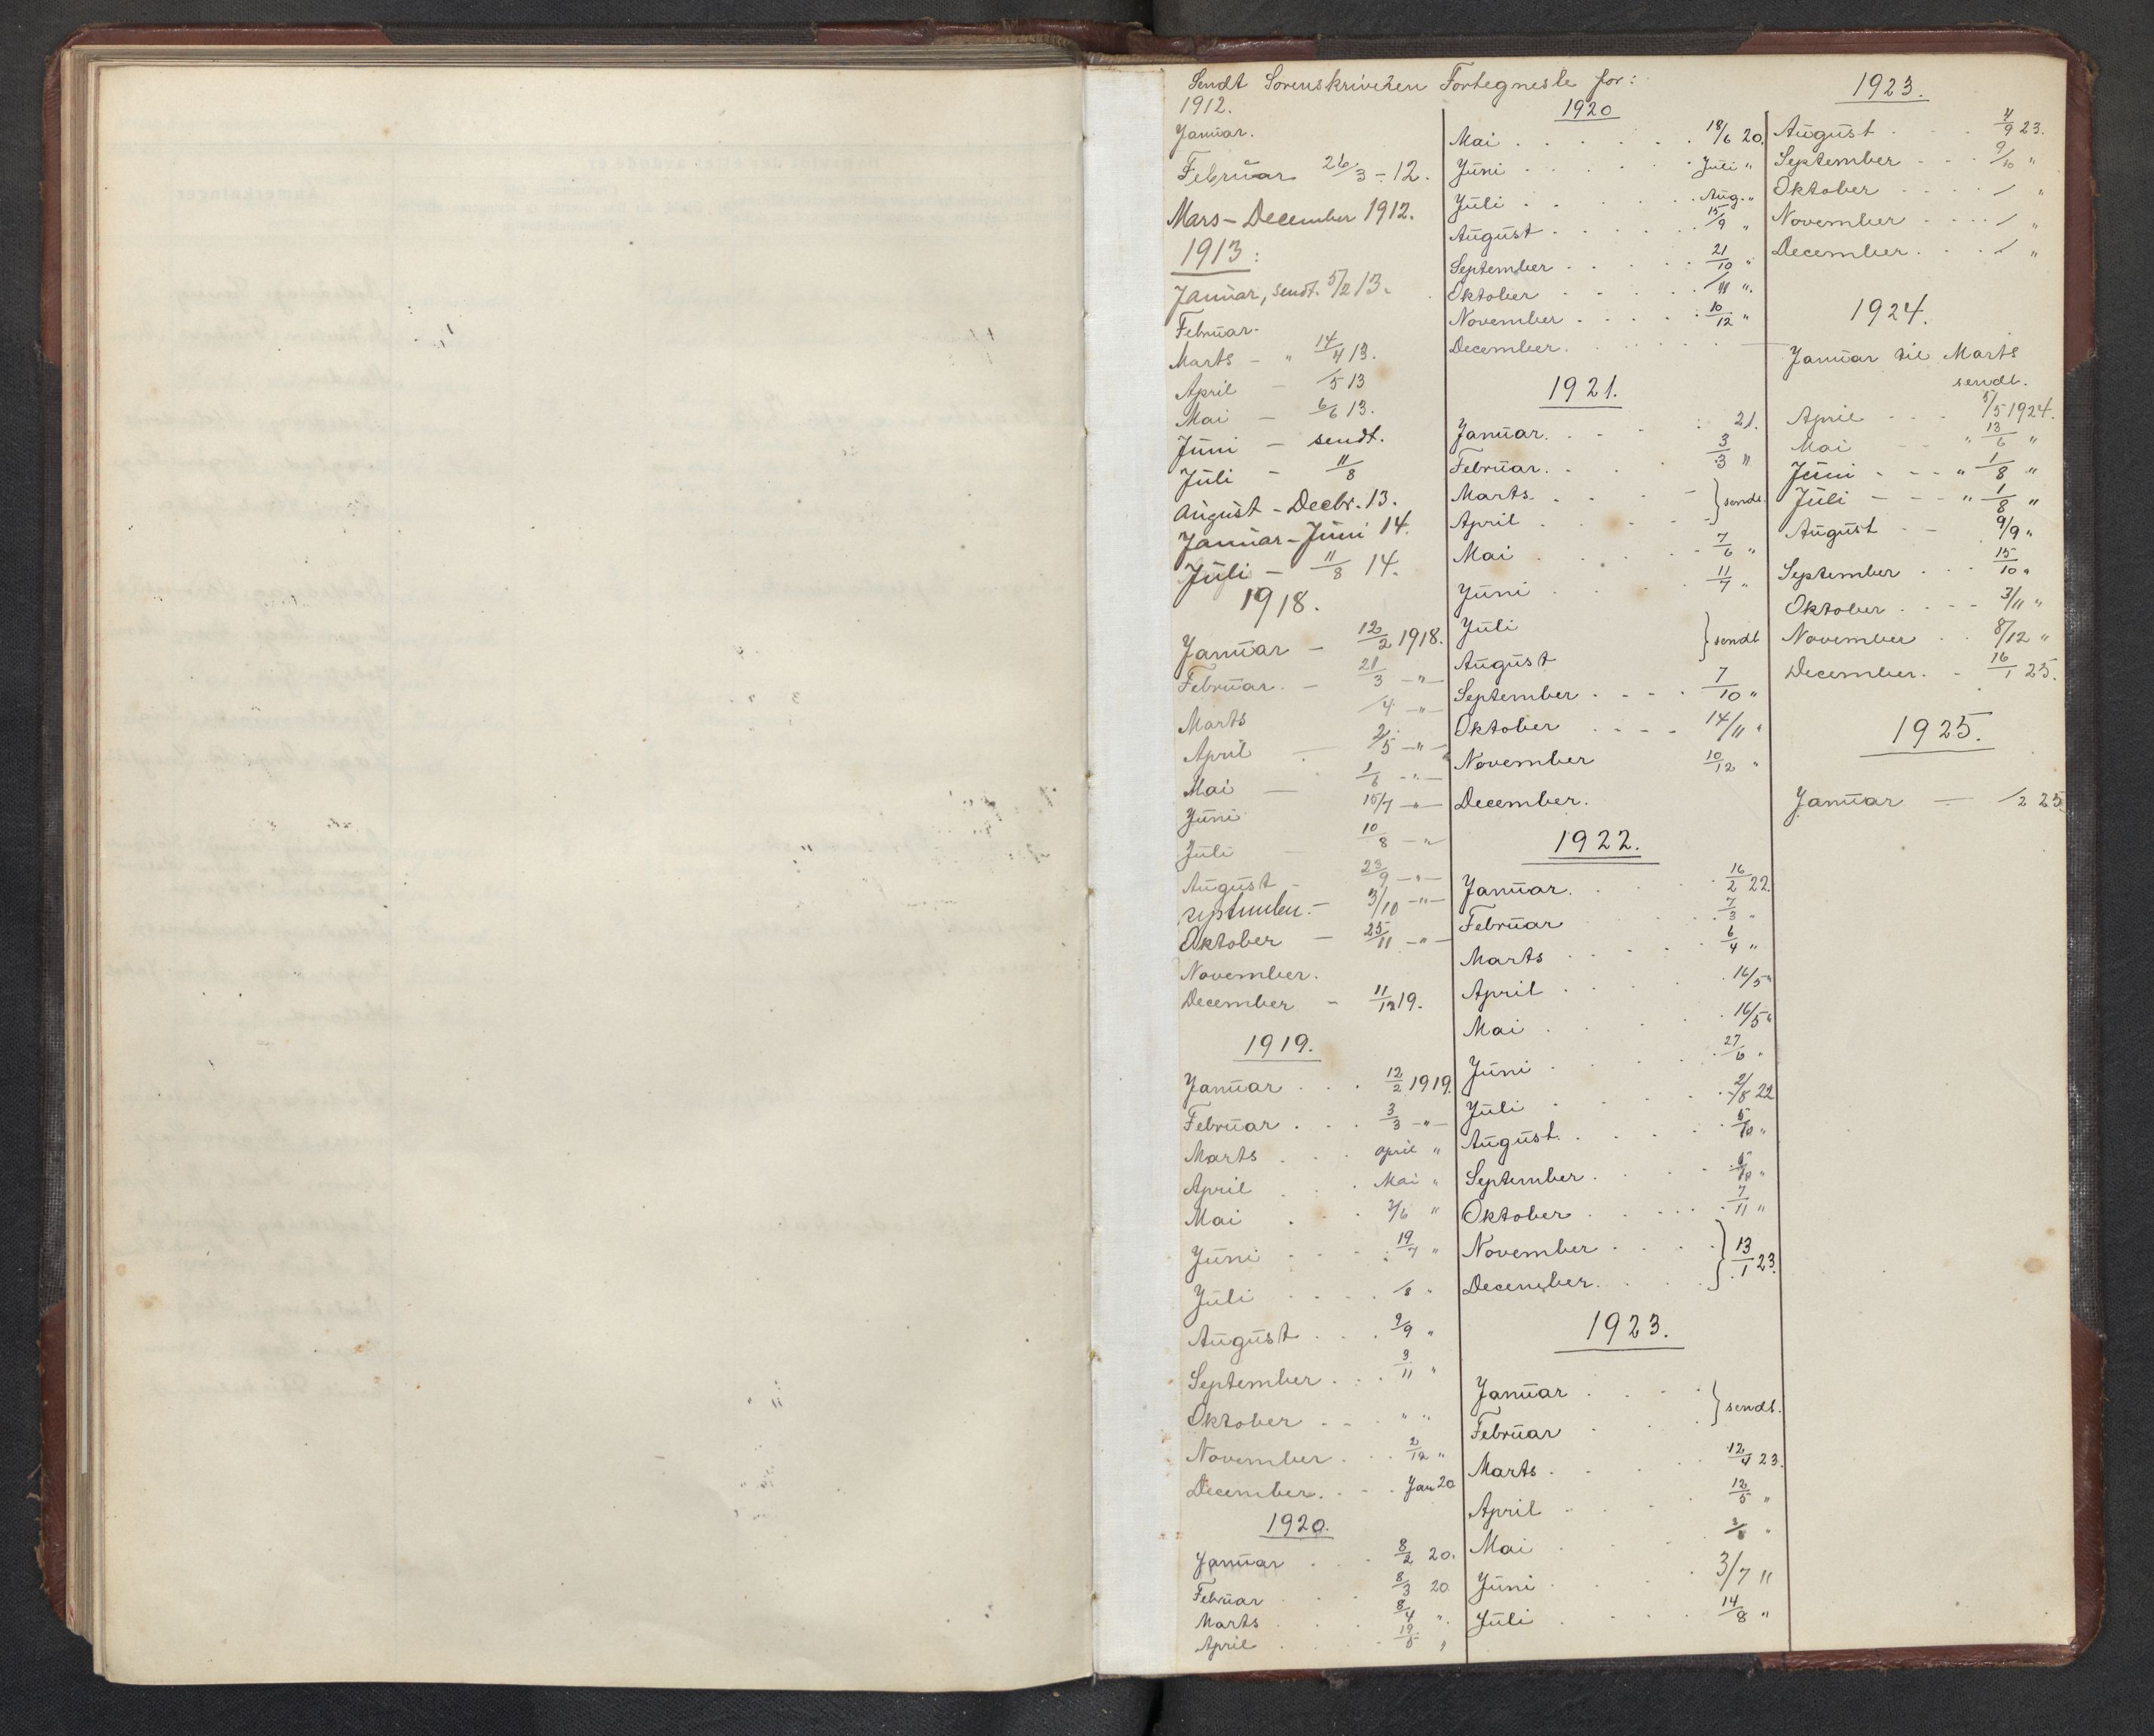 Sendt Sorenskriveren Fortegnelse for:
1912.
Januar.
Februar 26/3 - 12.
Mars - December 1912.
1913:
Januar, sendt. 5/2 13.
Februar.
Marts - " 14/4 13.
April - /5 13
Mai - 6/6 13.
Juni - sendt.
Juli - 11/8
August - Decbr. 13.
Januar - Juni 14.
Juli - 11/8 14.
1918.
Januar - 12/2 1918.
Februar. - 21/3 - " -
Marts /4 - " -
April - 2/5 - " -
Mai - 1/6 - " -
Juni 15/7 - " -
Juli - 10/8 - " -
August - 23/9 - " -
september. - 3/10 - " -
Oktober - 25/11 - " -
November.
December - 11/12 19.
1919.
Januar . . . 12/2 1919.
Februar . . . 3/3 - " -
Marts . . . april "
April . . . Mai "
Mai . . . 3/6 "
Juni . . . 19/7 "
Juli . . . . /8 "
August . . . 9/9 "
September . . . 3/11 "
Oktober - - - " "
November . . . 2/12 "
December. - - . Jan 20
1920.
Januar . . . 8/2 20.
Februar . . 8/3 20
Marts . . . 8/4 "
April . . . . 19/5 "
1920
Mai . . . . . . 18/6 20.
Juni . . . . . Juli "
Juli . . . . . . Aug. "
August . . . . . 15/9 "
September . . . . . 21/10 "
Oktober . . . . . /11 ".
November . . . . . 10/12 "
December. . . . . .
1921.
Januar. . . . : 21.
Februar. . . . 3/3 "
Marts. . . . - } sendt.
April . . . . -
Mai . . . . . 7/6 "
Juni . . . . 11/7 "
Juli } sendt
August
September . . . . 7/10 "
Oktober . . . . 14/11 "
November 10/12 "
December.
1922.
Januar. . . . . 16/2 22.
Februar . . . 7/3 "
Marts . . . . . 6/4 "
April . . . . . 16/5 "
Mai . . . . . 16/5 "
Juni . . . . 27/6 "
Juli . . . . . 2/8 22
August. . . . . 5/10 "
September . . . . 5/10 "
Oktober . . . . . 7/11 "
November . . . . } 13/1 23.
December. . . .
1923.
Januar . . . . } sendt.
Februar .
Marts . . . . 12/4 23.
April . . . . 12/5 "
Mai . . .
Juni . . . . 3/7 "
Juli . . . . 14/8 "
1923.
August . . . 4/9 23.
September . . . 9/10 "
Oktober . . . . / "
November . . . . / "
December. . . . / "
1924.
Januar til Marts
sendt.
April . . . 5/5 1924.
Mai - " 13/6 "
Juni - - - " 1/8 "
Juli - - - " 1/8 "
August - - 9/9 "
September . . . 15/10 "
Oktober . . . - 3/11 "
November . . 8/12 "
December. . - 16/1 25.
1925.
Januar - /2 25